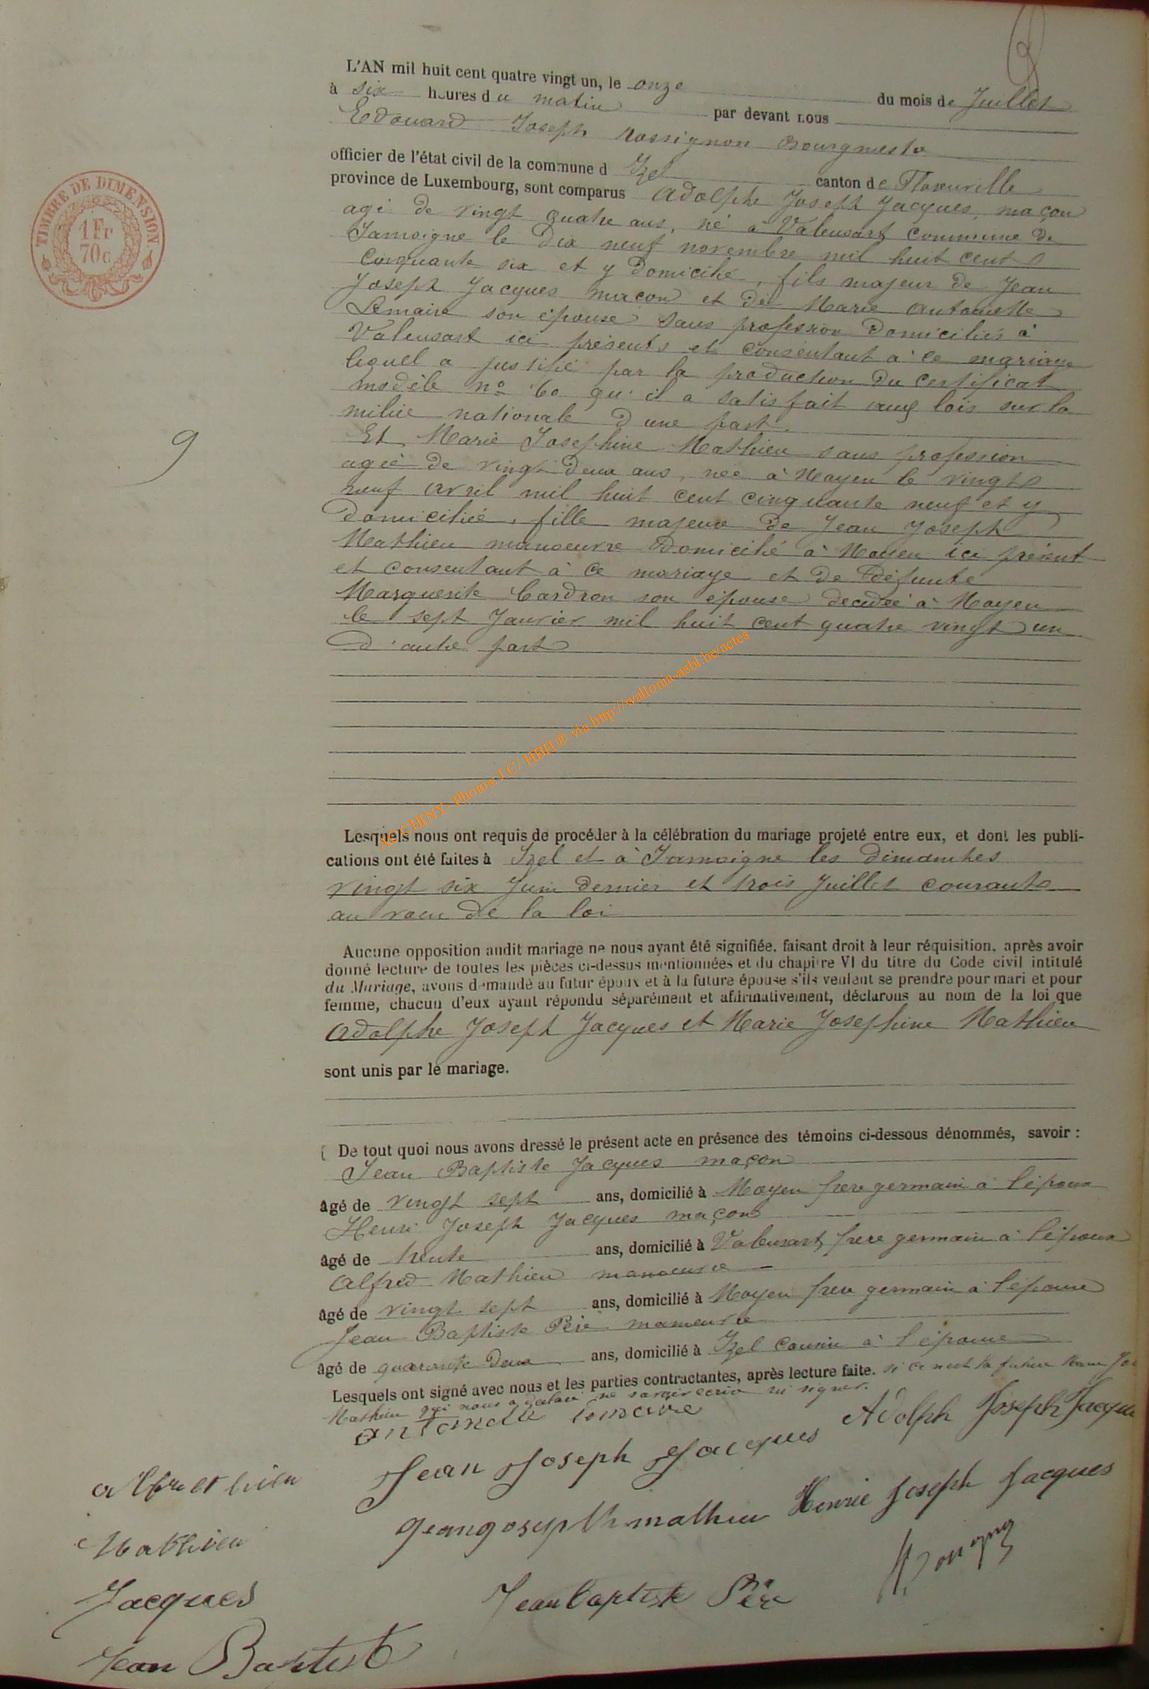 TIMBRE DE DIMENSION
1 Fr
70 c
9
L'AN mil huit cent quatre vingt un, le onze du mois de Juillet
à six heures du matin par devant nous
Edouard Joseph Rossignon Bourgmestre
officier de l'état civil de la commune d Izel canton de Florenville
province de Luxembourg, sont comparus Adolphe Joseph Jacques, maçon
agé de vingt quatre ans, né à Valensart commune de
Jamoigne le dix neuf novembre mil huit cent
cinquante six et y domicilié, fils majeur de Jean
Joseph Jacques maçon et de Marie Antoinette
Lemaire son épouse sans profession domiciliés à
Valensart ici présents et consentant à ce mariage
lequel a justifié par la production du certificat
modèle no 60 qu'il a satisfait aux lois sur la
milice nationale d'une part.
Et Marie Josephine Mathieu sans profession
agée de vingt deux ans, née à Moyen le vingt
neuf avril mil huit cent cinquante neuf et y
domiciliée, fille majeure de Jean Joseph
Mathieu manoeuvre domicilié à Moyen ici présent
et consentant à ce mariage et de défunte
Marguerite Cardron son épouse décédée à Moyen
le sept Janvier mil huit cent quatre vingt un
d'autre part
Photos LC/ HBH ® via http://wallonia-asbl.be/actes
Lesquels nous ont requis de procéder à la célébration du mariage projeté entre eux, et dont les publi-
cations ont été faites à Izel et à Jamoigne les dimanches
vingt six Juin dernier et trois Juillet courant
au voeu de la loi
Aucune opposition audit mariage ne nous ayant été signifiée, faisant droit à leur réquisition, après avoir
donné lecture de toutes les pièces ci-dessus mentionnées et du chapitre VI du titre du Code civil intitulé
du Mariage, avons demandé au futur époux et à la future épouse s'ils veulent se prendre pour mari et pour
femme, chacun d'eux ayant répondu séparément et affirmativement, déclarons au nom de la loi que
Adolphe Joseph Jacques et Marie Josephine Mathieu
sont unis par le mariage.
De tout quoi nous avons dressé le présent acte en présence des témoins ci-dessous dénommés, savoir :
Jean Baptiste Jacques maçon
âgé de vingt sept ans, domicilié à Moyen frere germain à l'époux
Henri Joseph Jacques maçon
âgé de trente ans, domicilié à Valensart, frere germain à l'époux
Alfred Mathieu manoeuvre
âgé de vingt sept ans, domicilié à Moyen frere germain à l'épouse
Jean Baptiste Péré manoeuvre
âgé de quarante deux ans, domicilié à Izel cousin à l'épouse
Lesquels ont signé avec nous et les parties contractantes, après lecture faite. si ce n'est la future
Mathieu qui nous a déclaré ne savoir écrire ni signer.
antonette lemaire
Adolph Joseph Jacque
Jean Joseph Jacques
Jean joseph mathieu Henrie Joseph Jacques
Mathieu
Jean baptiste Péré
Jacques
Jean Baptiste